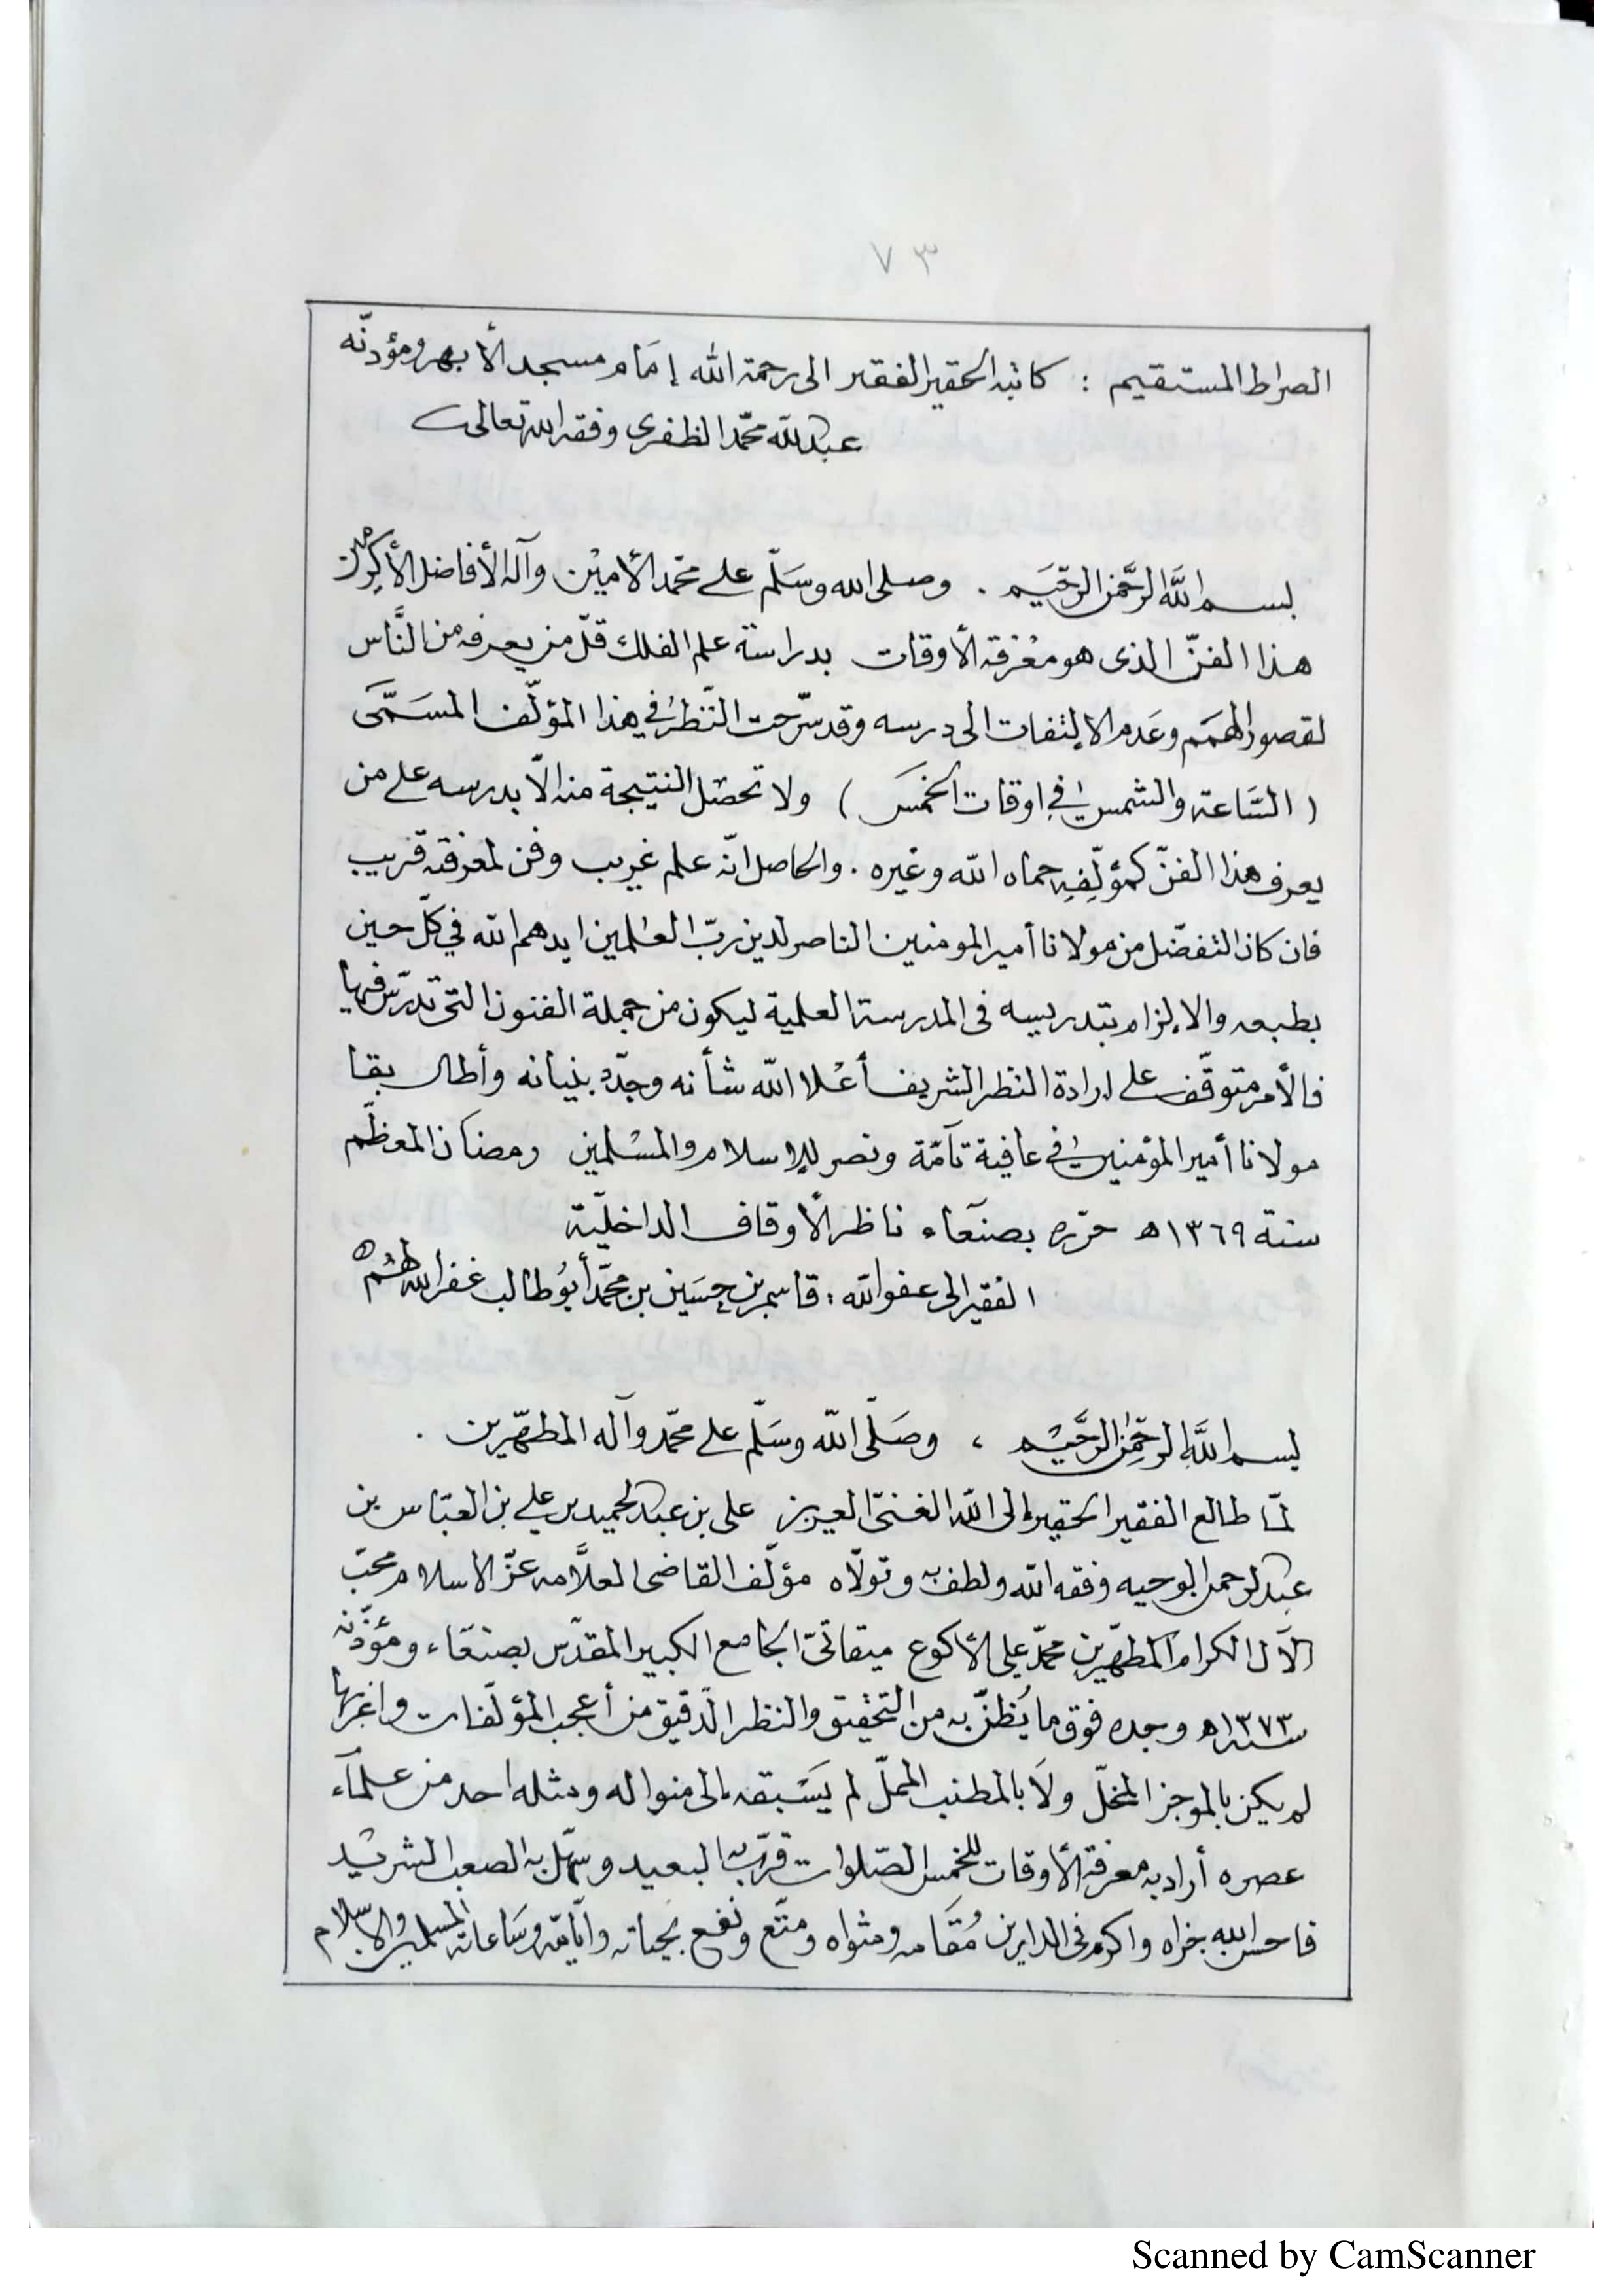 ٧٣
الصراط المستقيم : كاتبه الحقير الفقير الى رحمة الله إمَام مسجد الأبهر ومؤذنه
عبدالله محمّد الظفرى وفقه الله تعالى
بسم اللَّه الرَّحمن الرَّحيم . وصلى الله وسَلّم على محمّد الأمين وآله الأفاضل الأكرمين
هذا الفنّ الذى هو معْرفة الأوقات بدراسة علم الفلك قلّ من يعرفه من النَّاس
لقصور الهمَم وعَدم الالتفات الى درسه وقد سرّحت النّظر في هذا المؤلّف المسَمَّى
( السَّاعة والشمس في اوقات الخمسَ ) ولا تحصل النتيجة منه الاّ بدرسه على من
يعرف هذا الفنّ كمؤلّفِه حماه الله وغيره . والحاصل انّه علم غريب وفن لمعرفته قريب
فان كان التفضّل من مولانا أمير المومنين الناصر لدين ربّ العٰلمين ايدهم الله في كلّ حين
بطبعه والالزام بتدريسه فى المدرسة العلمية ليكون من جملة الفنون التى تدرّس فيها
فالأمر متوقّف على ارادة النظر الشريف أعْلا الله شأنه وجدّد بنيانه وأطال بقا
مولانا أمير المؤمنين في عافية تآمّة ونصر للاسلام والمسْلمين رمضان المعظّم
سنة ١٣٦٩ه حرّره بصنعَاء ناظر الأوقاف الداخليّة
الفقير الى عفو الله : قاسم بن حسَين بن محمّد أبوُطالب غفر الله لهُم ه
بسم اللَّه الرحمٰن الرَّحيْم ، وصَلّى الله وسَلّم على محمّد وآله المطهّرين .
لمّا طالع الفقير الحقير إلى الله الغنىّ العزيز على بن عبدالحميد بن علي بن العبّاس بن
عبدالرحمن الوجيه وفقه الله ولطف به وتولّاه مؤلّف القاضى العلاَّمه عزّ الاسلام محبّ
الآل الكرام المطهّرين محمّد علي الأكوع ميقاتىّ الجامع الكبير المقدّس بصنعَاء ومؤذّنه
سنة ١٣٧٣ه وجده فوق ما يُظنّ به من التحْقيق والنظر الدّقيق من أعجب المؤلّفات واغربها
لم يكن بالموجز المخلّ ولاَ بالمطنب الممَلّ لم يَسْبقه الى منواله ومثله احد من علمآء
عصره أراد به معرفة الأوقات للخمس الصّلوات قرّب به البعيد وسهّل به الصعب الشريد
فاحسن الله جزاه واكرم فى الدارين مُقَامه ومثواه ومتّع ونفع بحياته وأيّامه وسَاعاته المسلمين والاسلام
Scanned by CamScanner